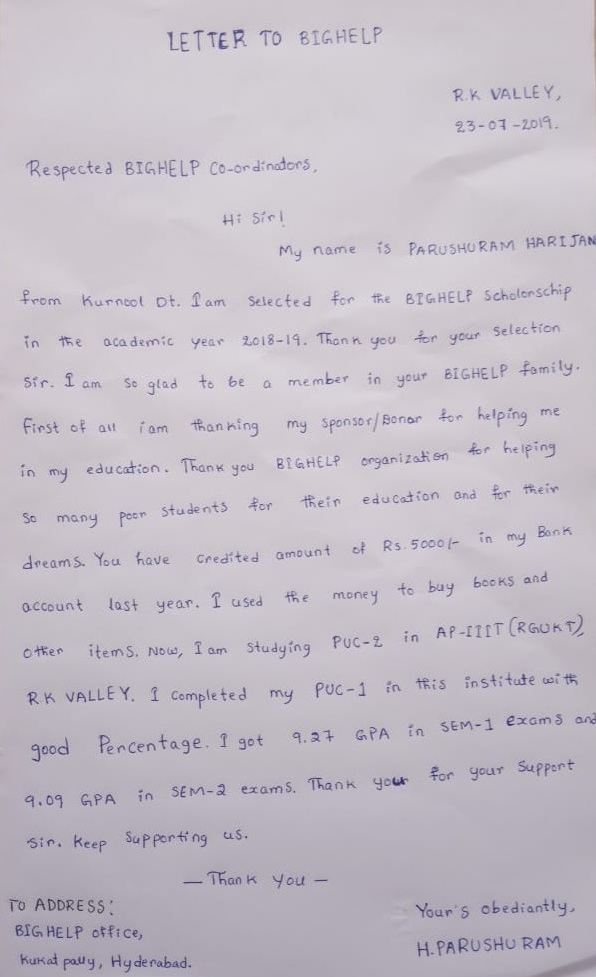 LETTER TO BIGHELP
R.K VALLEY,
23-07-2019.
Respected BIGHELP Co-ordinators,
Hi Sir!
My name is PARUSHURAM HARIJAN
from Kurnool Dt. I am Selected for the BIGHELP Scholorschip
in the academic year 2018-19. Thank you for your Selection
Sir. I am So glad to be a member in your BIGHELP family.
First of all i am thanking my Sponsor/Donar for helping me
in my education. Thank you BIGHELP organization for helping
So many poor Students for their education and for their
dreams. You have Credited amount of Rs.5000/- in my Bank
account last year. I used the money to buy books and
Other items. Now, I am Studying PUC-2 in AP-IIIT (RGUKT),
R.K VALLEY. I Completed my PUC-1 in this institute with
good Percentage. I got 9.27 GPA in SEM-1 exams and
9.09 GPA in SEM-2 exams. Thank you for your Support
Sir. Keep Supporting us.
— Thank You —
TO ADDRESS:
BIGHELP office,
Kukat pally, Hyderabad.
Your's obediantly,
H.PARUSHURAM